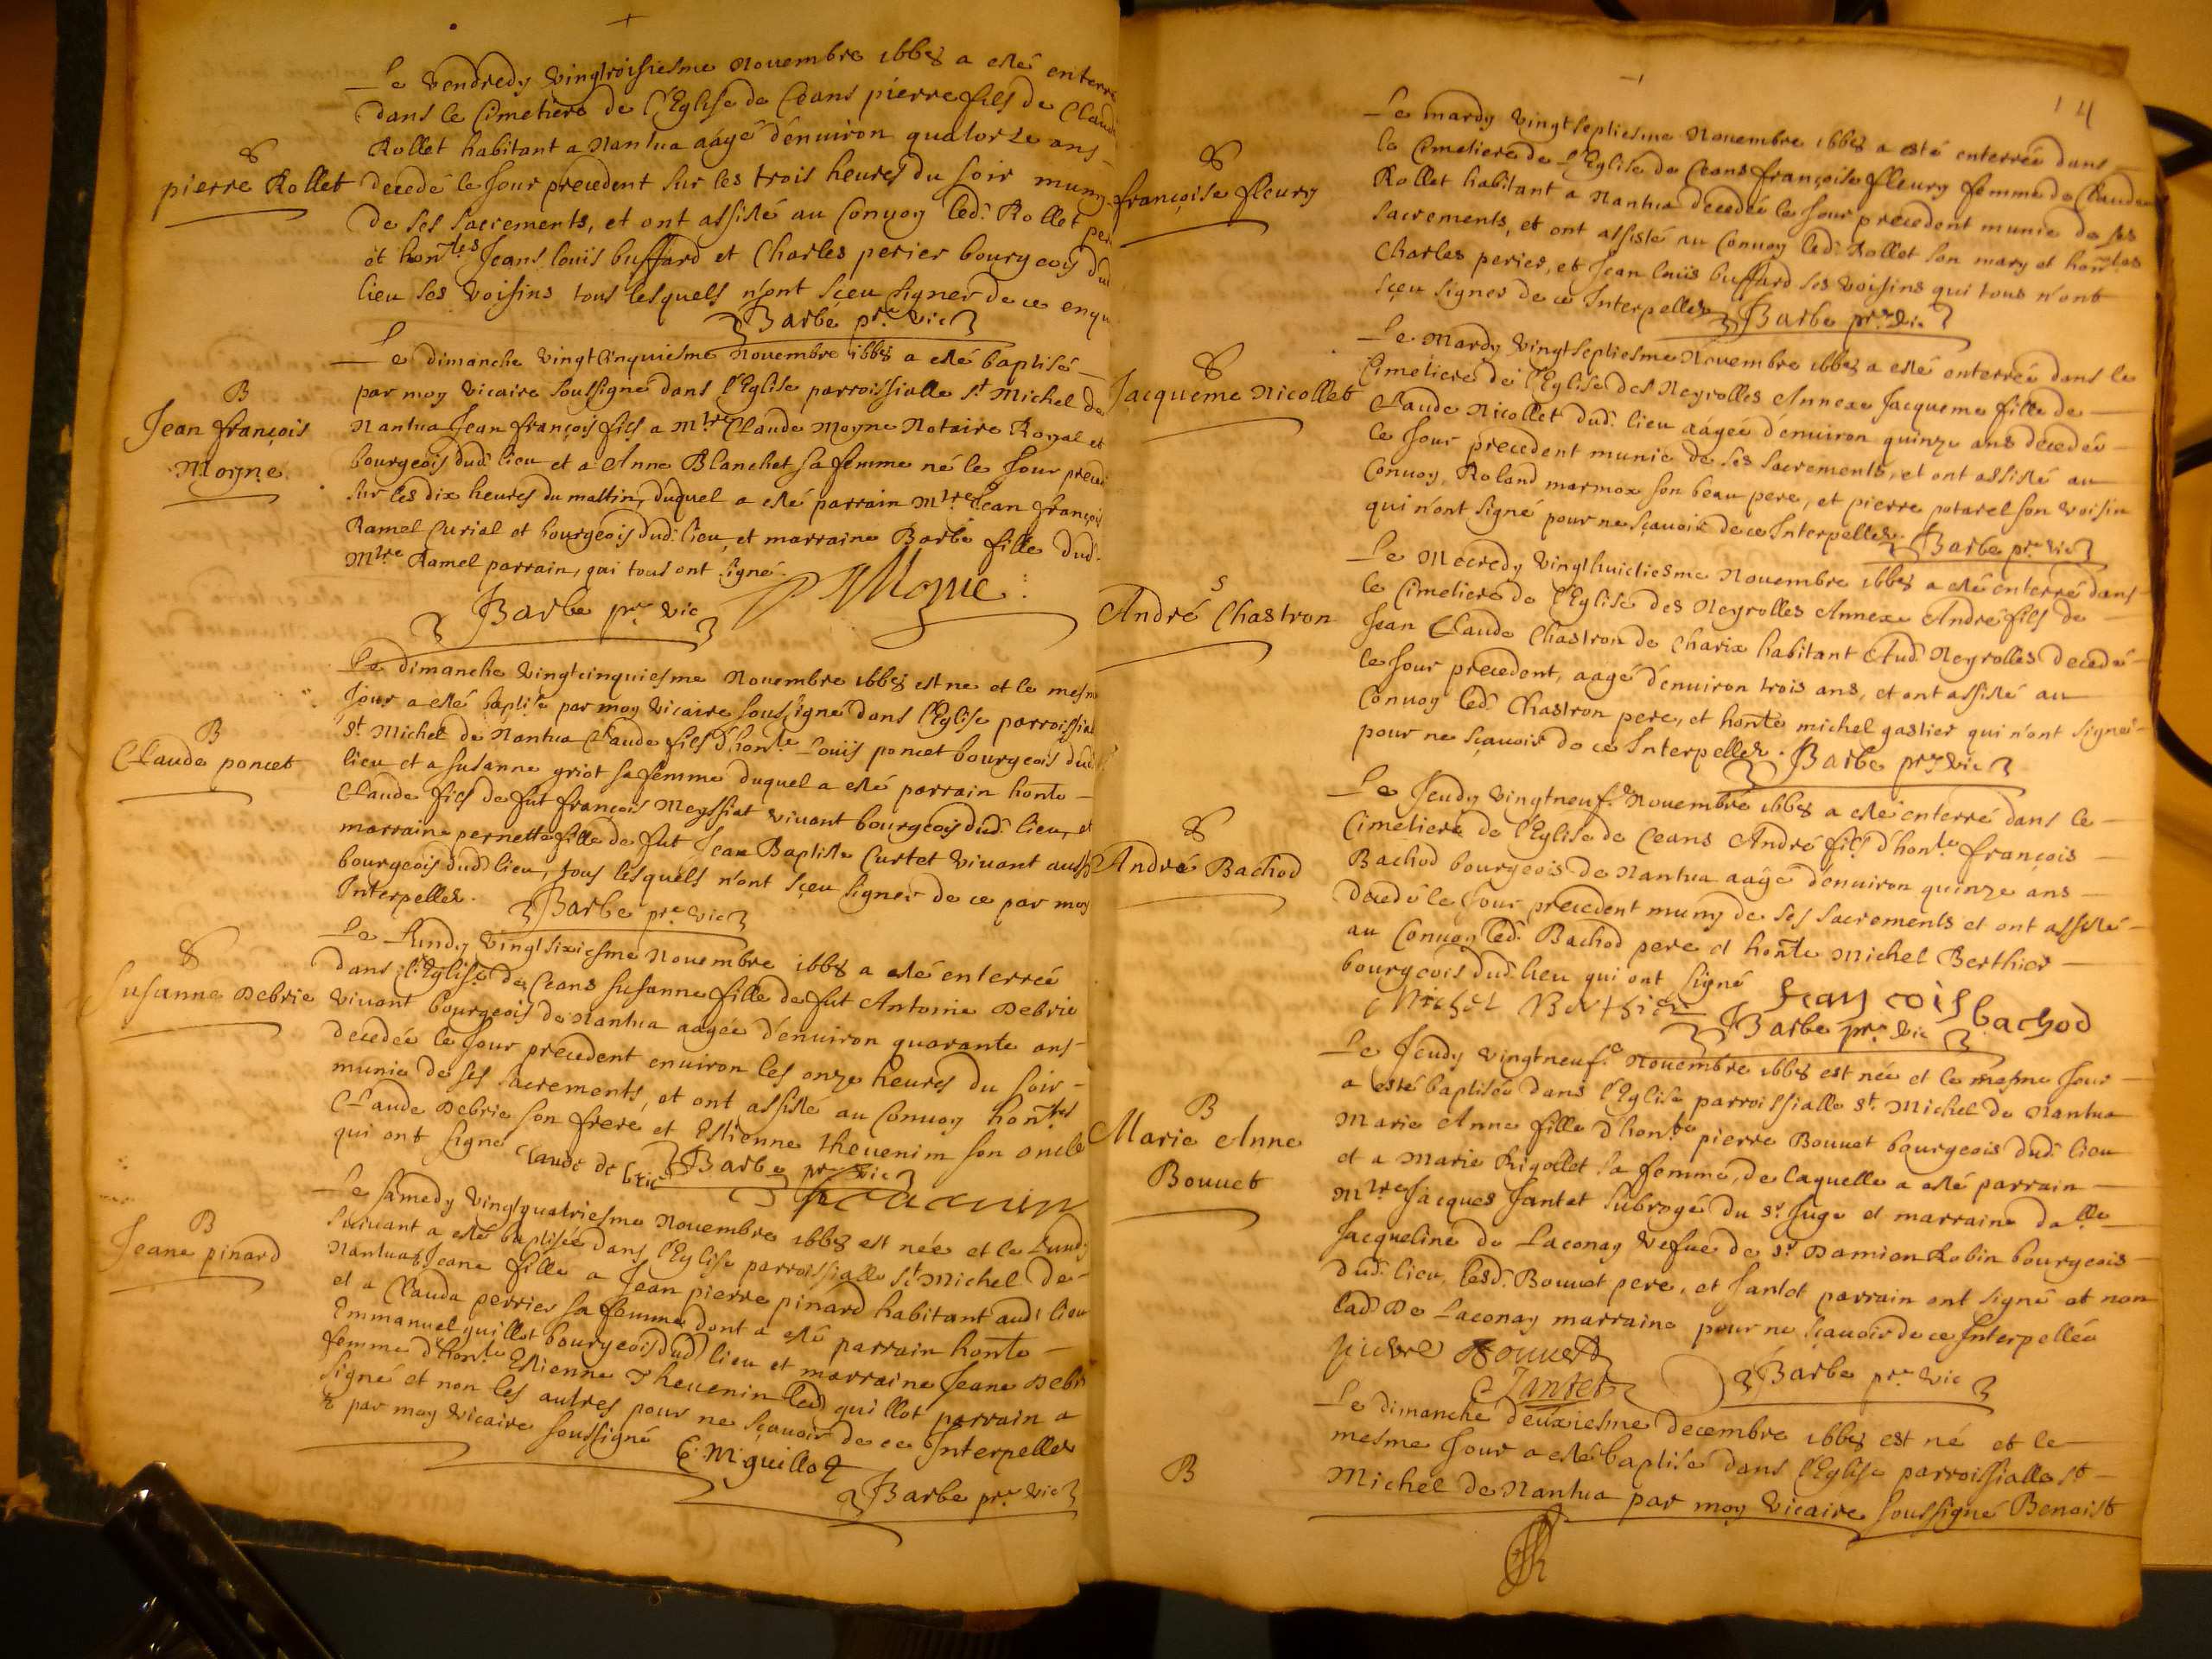 Le Vendredy Vingtroisiesme Nouembre 1668 a esté enterré
dans le Cimetiere de l'Eglise de Ceans pierre fils de Claude
Rollet habitant a Nantua aagé d'enuiron quatorze ans
S
pierre Rollet
decedé le Jour precedent sur les trois heures du soir muny
de ses sacrements, et ont assisté au Conuoy led. Rollet pere
et hon.tes Jeans louis buffard et Charles perier bourgeois dud
lieu ses Voisins tous lesquels n'ont sçeu signer de ce enqu
Barbe pr.e vic
Le dimanche Vingt cinquiesme Nouembre 1668 a esté baptisé
B
Jean françois
Moyne
par moy vicaire soussigné dans l'Eglise parroissialle st Michel de
Nantua Jean françois fils a M.tre Claude Moyne Notaire Royal et
bourgeois dud. lieu et a Anne Blanchet sa femme né le Jour preced
sur les dix heures du mattin, duquel a esté parrain M.tre Jean françois
Ramel Curial et bourgeois dud. lieu, et marraine Barbe fille dud.
M.tre Ramel parrain, qui tous ont signé.
Barbe pr.e vic Moyne
Le dimanche Vingt cinquiesme Nouembre 1668 est ne et le mesme
Jour a esté baptisé par moy Vicaire soussigné dans l'Eglise parroissial
B
Claude poncet
st. Michel de Nantua Claude fils d'hon.te Louis poncet bourgeois dud.
lieu et a susanne griot sa femme duquel a esté parrain honte
Claude fils de fut françois Meyssiat viuant bourgeois dud. lieu, et
marraine pernette fille de fut Jean Baptiste Curtet viuant aussy
bourgeois dud lieu, tous lesquels n'ont sçeu signer de ce par moy
Interpelles. Barbe pr.e vic
Le Lundy Vingt sixiesme Nouembre 1668 a esté enterrée
S
Susanne Debrie
dans l'Eglise de Ceans susanne fille de fut Antoine Debrie
viuant bourgeois de Nantua aagée d'enuiron quarante ans
decedée le Jour precedent enuiron les onze heures du soir
munie de ses sacrements, et ont assisté au Conuoy hon.tes
Claude Debrie son frere et Estienne theuenin son oncle
qui ont signé Claude de brie Barbe pr.e vic
Le samedy Vingtquatriesme Nouembre 1668 est née et le Lundi
B
Jeane pinard
suiuant a esté baptisée dans l'Eglise parroissialle st Michel de
Nantua Jeane fille a Jean pierre pinard habitant aud. lieu
et a Clauda perrier sa femme dont a esté parrain honte
Emmanuel guillot bourgeois dud lieu et marraine Jeane Debri
femme d'hon.te Estienne Theuenin led guillot parrain a
signé et non les autres pour ne sçauoir de ce Interpelles
par moy vicaire soussigné E. M. guillot
Barbe pr.e vic
14
Le mardy Vingt septiesme Nouembre 1668 a esté enterrée dans
S
françoise fleury
le Cimetiere de l'Eglise de Ceans françoise fleury femme de Claude
Rollet habitant a Nantua decedée le Jour precedent munie de ses
sacrements, et ont assisté au Conuoy led. Rollet son mary et hon.tes
Charles perier, et Jean louis buffard ses voisins qui tous n'ont
sçeu signer de ce Interpelles Barbe pr.e vic
Le Mardy Vingt septiesme Nouembre 1668 a esté enterrée dans le
S
Jacqueme Nicollet
Cimetiere de l'Eglise des Neyrolles Annexe Jacqueme fille de
Claude Nicollet dud. lieu aagée d'enuiron quinze ans decedée
le Jour precedent munie de ses sacrements, et ont assisté au
Conuoy, Roland marmox son beau pere, et pierre potarel son voisin
qui n'ont signé pour ne sçauoir de ce Interpelles. Barbe pr.e vic
Le Mecredy Vingt huictiesme Nouembre 1668 a esté enterré dans
S
André Chastron
le Cimetiere de l'Eglise des Neyrolles Annexe André fils de
Jean Claude Chastron de Charix habitant Aud. Neyrolles decedé
le Jour precedent, aagé d'enuiron trois ans, et ont assisté au
Conuoy led. Chastron pere, et honte michel gastier qui n'ont signé
pour ne sçauoir de ce Interpelles. Barbe pr.e vic
Le Jeudy Vingtneuf.e Nouembre 1668 a esté enterré dans le
S
André Bachod
Cimetiere de l'Eglise de Ceans André fils d'hon.te françois
Bachod bourgeois de Nantua aagé d'enuiron quinze ans
decedé le Jour precedent muny de ses sacrements et ont assisté
au Conuoy led. Bachod pere et honte Michel Berthier
bourgeois dud. lieu qui ont signé
Michel Berthier francois bachod
Barbe pr.e vic
Le Jeudy Vingtneuf.e Nouembre 1668 est née et le mesme Jour
a esté baptisée dans l'Eglise parroissialle st. Michel de Nantua
B
Marie Anne
Bouuet
Marie Anne fille d'hon.te pierre Bouuet bourgeois dud. lieu
et a Marie Rigollet sa femme, de laquelle a esté parrain
M.tre Jacques Jantet subrogé du sr. Juge et marraine da.lle
Jacqueline de Laconay vefue de sr. Damien Robin bourgeois
dud. lieu, lesd. Bouuet pere, et Jantet parrain ont signé et non
lad. De Laconay marraine pour ne sçauoir de ce Interpellée
pierre Bouuet
Jantet Barbe pr.e vic
Le dimanche deuxiesme decembre 1668 est né et le
B
mesme Jour a esté baptisé dans l'Eglise parroissialle st
Michel de Nantua par moy Vicaire soussigné Benoist